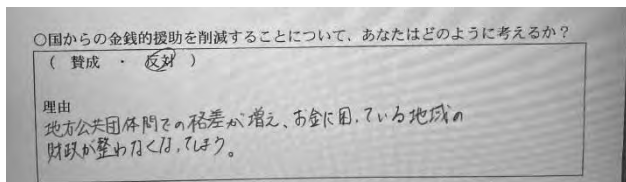 ○国からの金銭的援助を削減することについて、あなたはどのように考えるか?
( 賛成 ・ 反対 )
理由
地方公共団体間での格差が増え、お金に困っている地域の
財政が整わなくなってしまう。